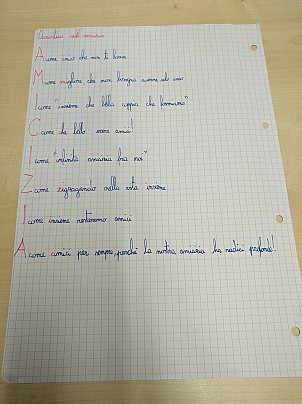 Acrostico sull'amicizia
A come amici che non ti lascia
M come migliore che non bisogna averne uno
I come "insieme che bella coppia che formiamo"
C come che bello essere amici!
I come "infinita amicizia tra noi"
Z come zigzagando nella vita insieme
I come insieme resteremo amici
A come amici per sempre, perché la nostra amicizia ha radici profonde!